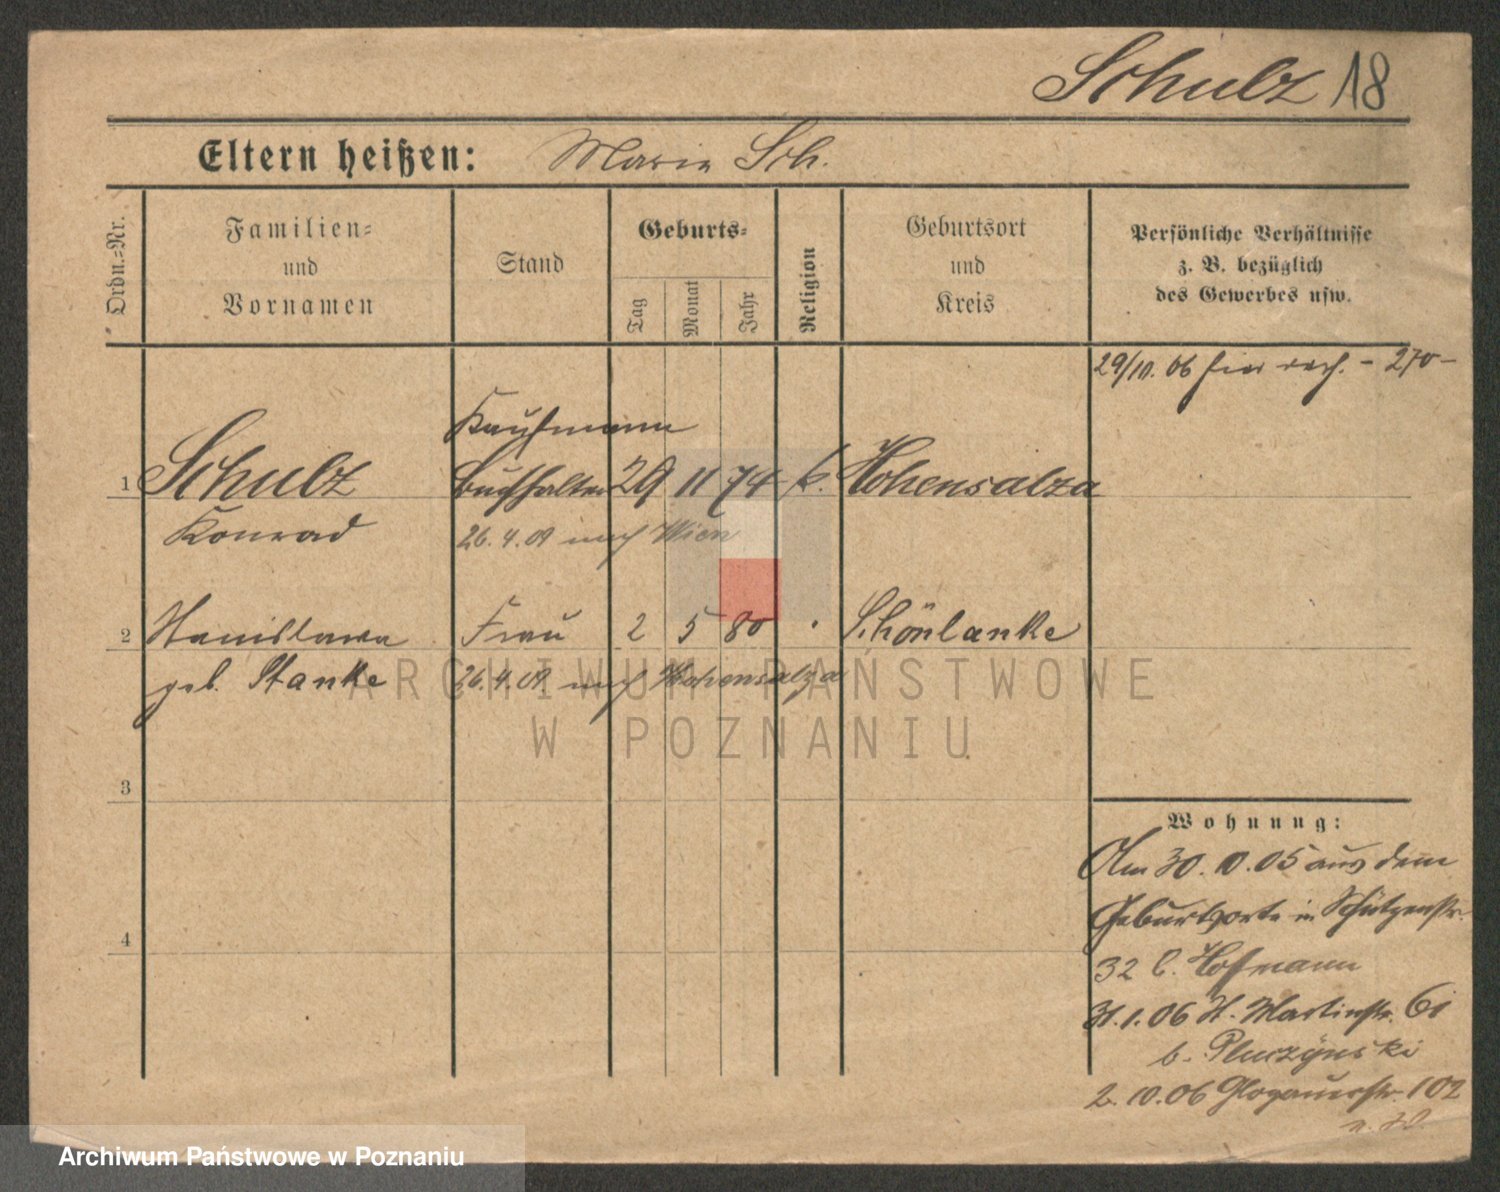 Schulz 18
Eltern heißen: Marie Sch.
Ordn.-Nr.
Familien-
und
Vornamen
Stand
Geburts-
Tag
Monat
Jahr
Religion
Geburtsort
und
Kreis
Persönliche Verhältnisse
z. B. bezüglich
des Gewerbes usw.
29/10. 06 hier - 270 -
Kaufmann
1 Schulz Buchhalter 29 11 74 k. Hohensalza
Konrad 26. 4. 09 nach Wien
2 Stanislawa Frau 2 5 80 Schönlanke
geb. Stanke 26. 4. 09 nach Hohensalza
ARCHIWUM PAŃSTWOWE
W POZNANIU
3
4
Wohnung:
Am 30. 10. 05 aus dem
Geburtsorte in Schützenstr.
32 b. Hofmann
31. 1. 06 St. Martinstr. 61
b. Pluczynski
2. 10. 06 Glogauerstr. 102
Archiwum Państwowe w Poznaniu